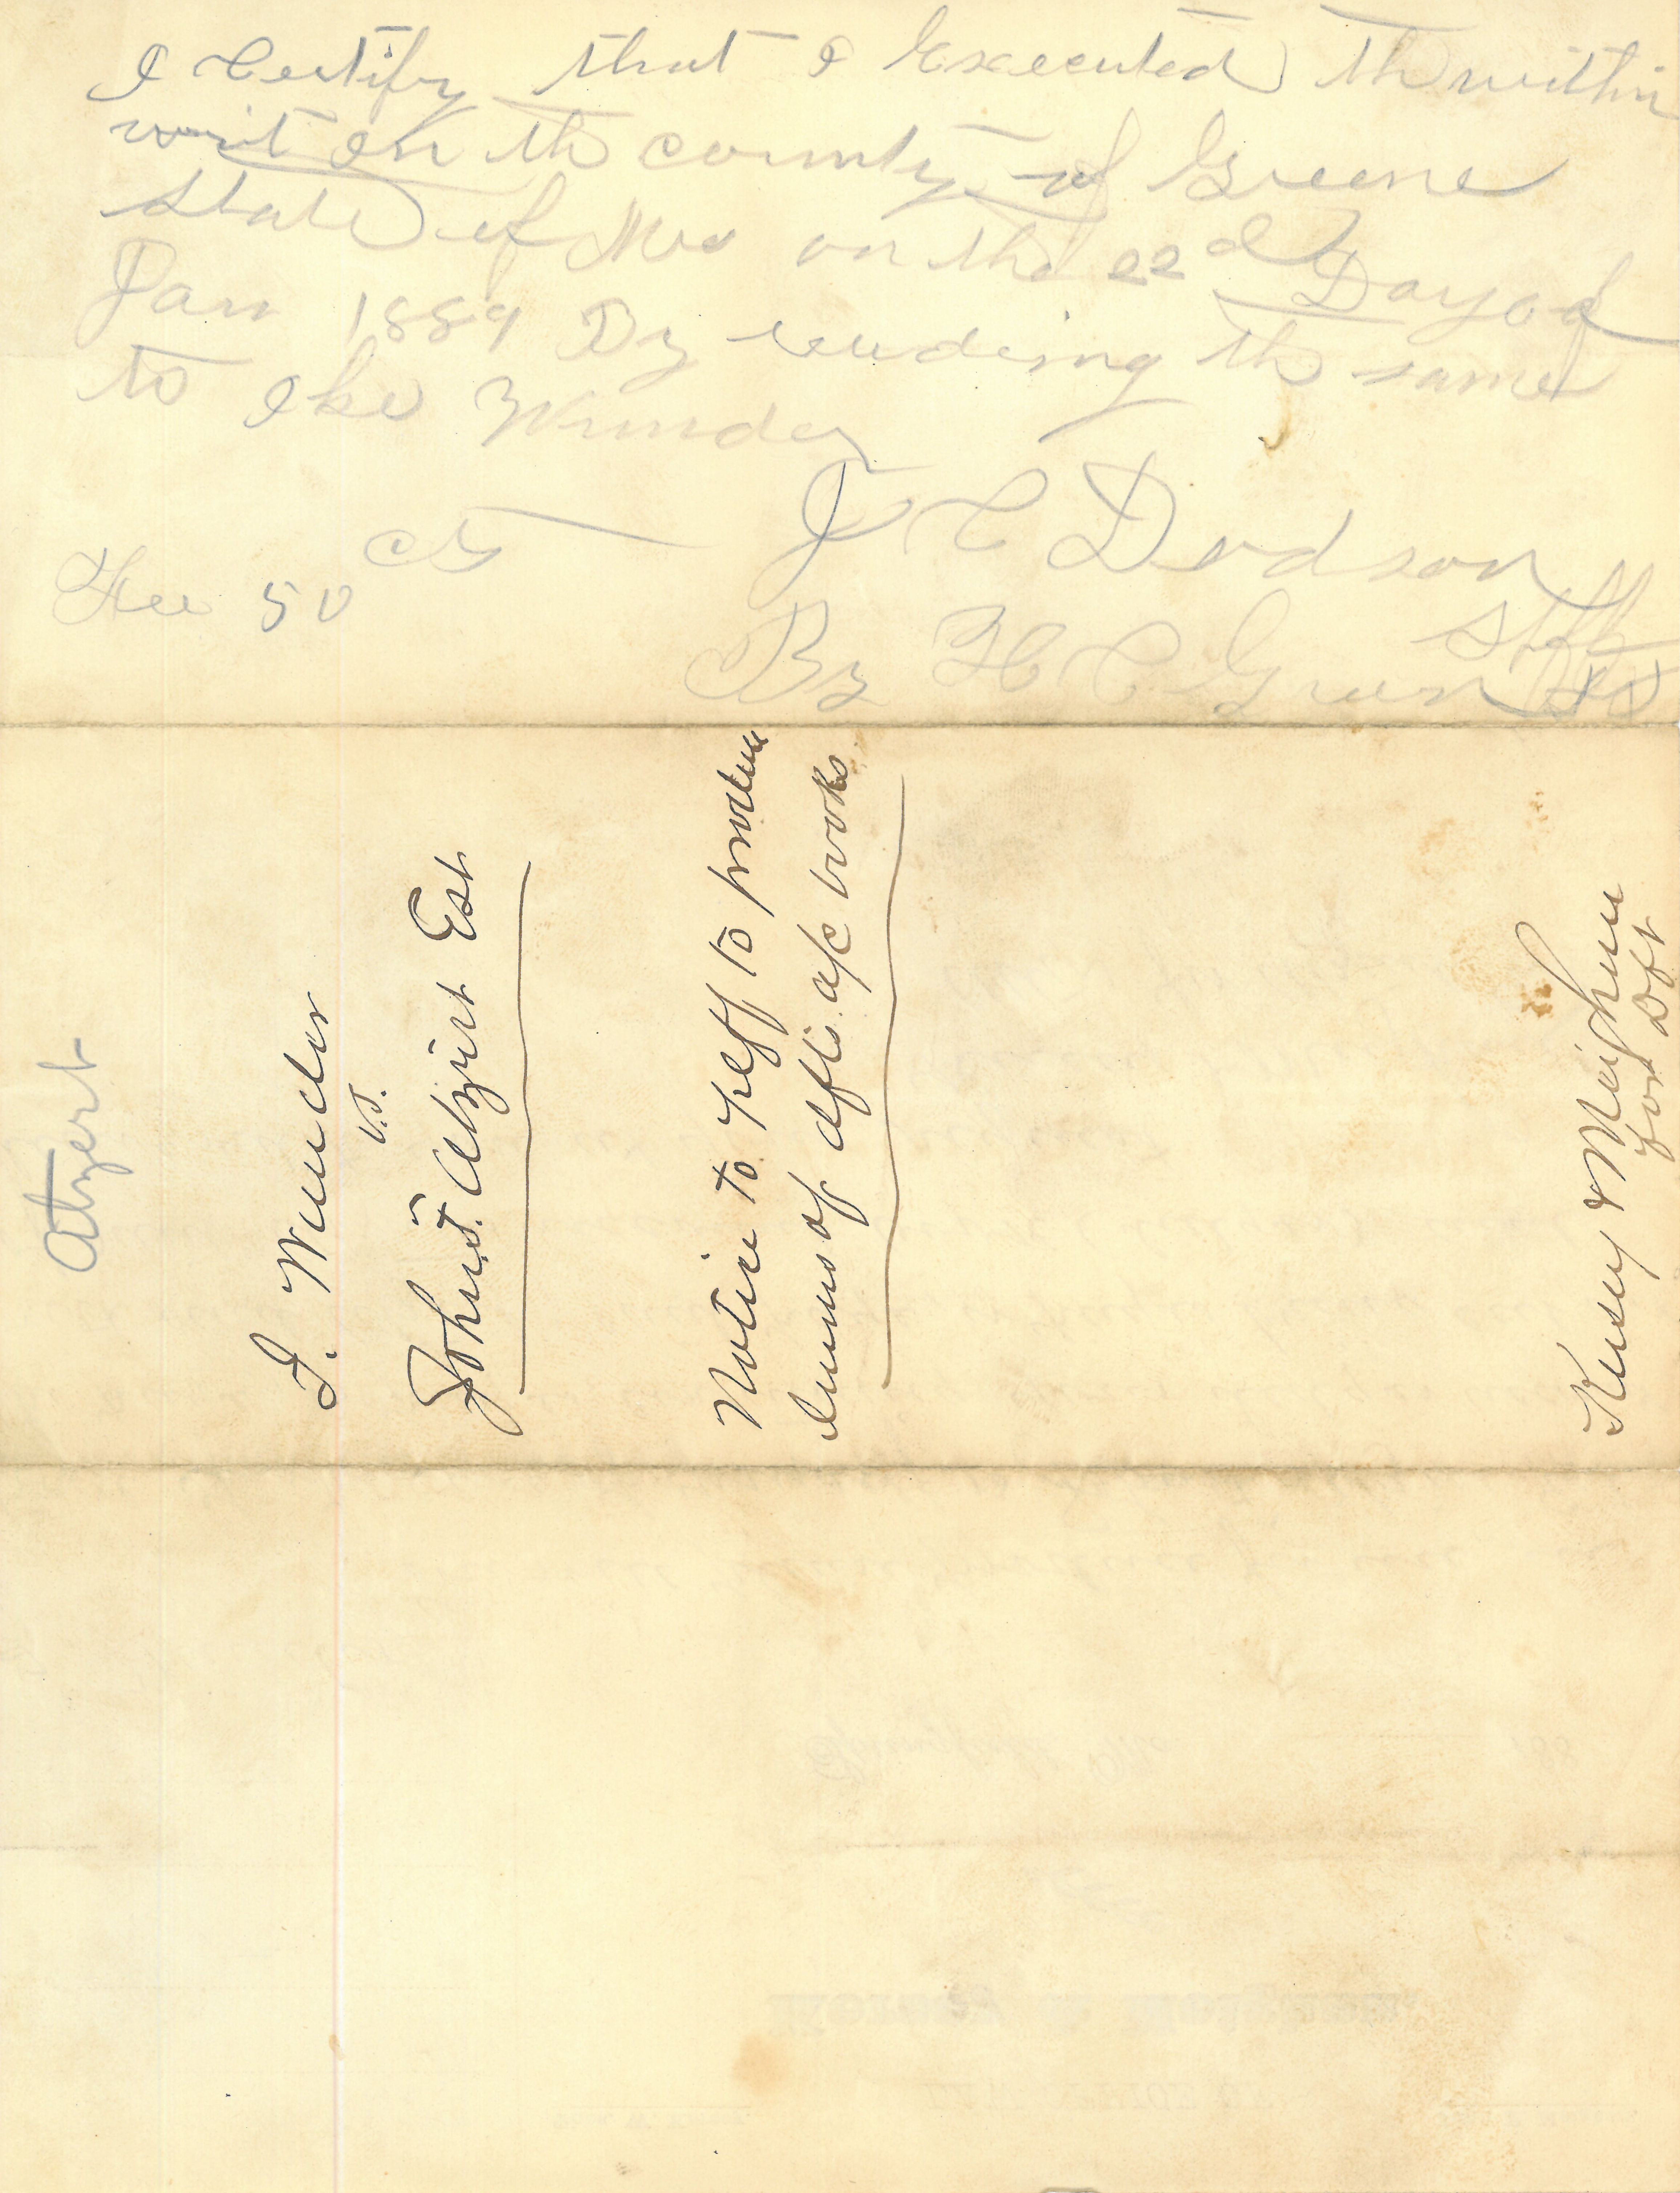 I Certify that I Executed th within
writ In th county of Greene
State of Mo on the 22d Day of
Jan 1889 By reading th same
to Ike Wunder
J C Dodson
Shff
Fee 50 cts
By H C Green DS
Atzert
I. Wunder
vs.
John S. Atzert Est
Notice to Plff to produce
of dfts a/c books
for Dft